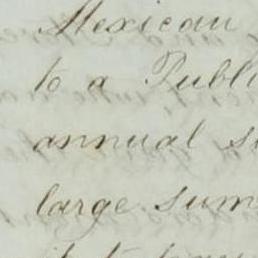 Mexican
to a Publi
annual s
large sum